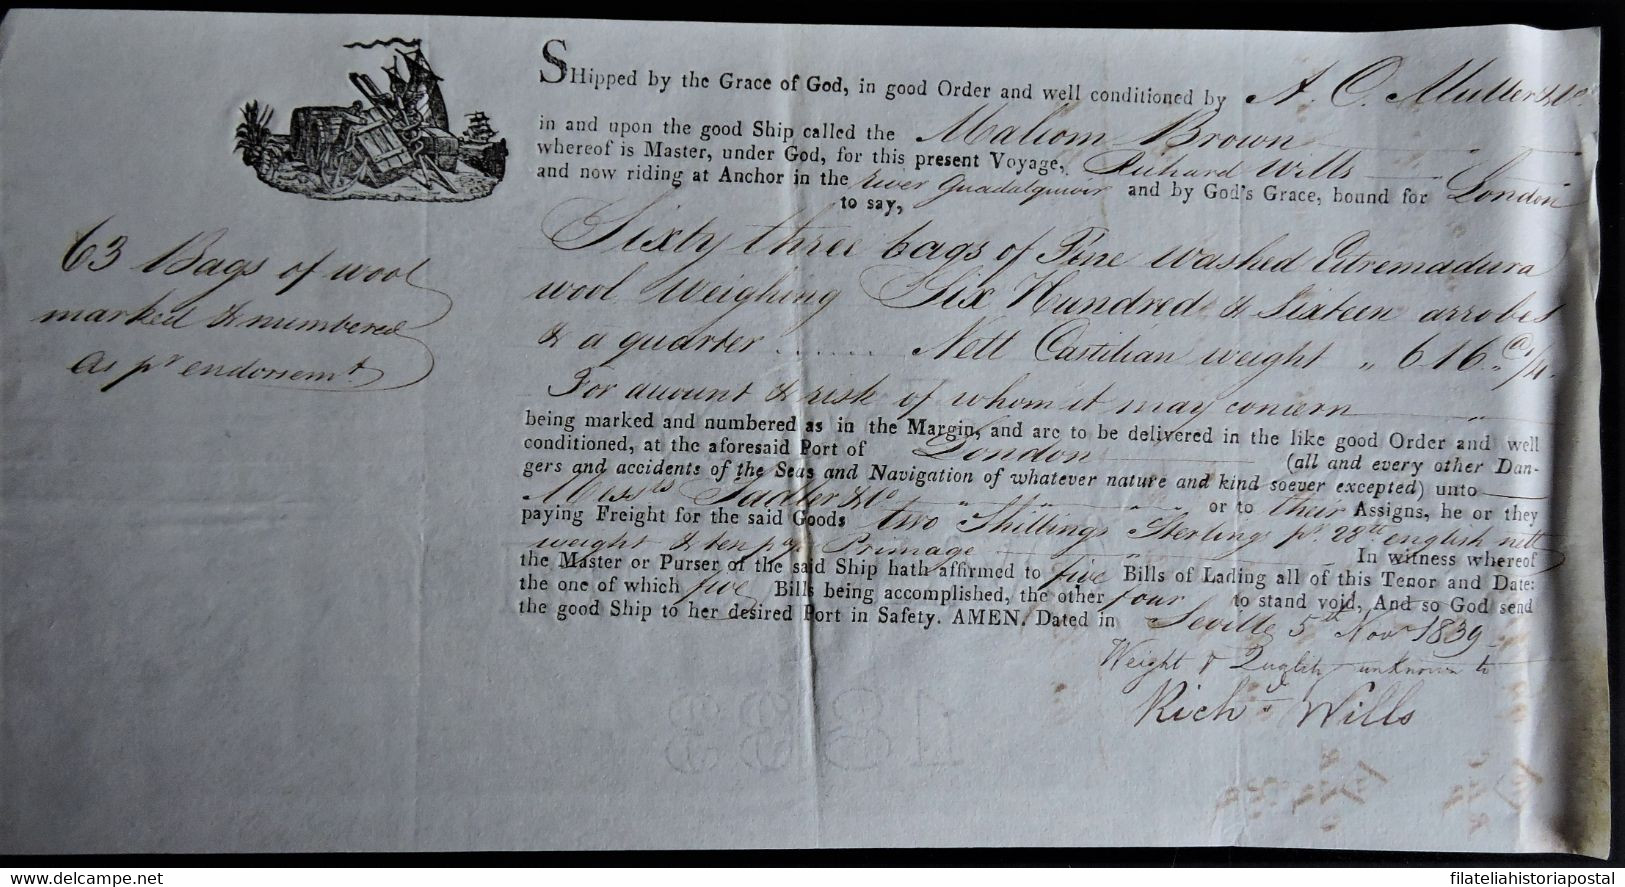 SHipped by the Grace of God, in good Order and well conditioned by A. O. Muller & Co.
in and upon the good Ship called the Malcom Brown
whereof is Master, under God, for this present Voyage, Richard Wills
and now riding at Anchor in the river Guadalquivir and by God's Grace, bound for London
to say,
Sixty three bags of Fine washed Estremadura
wool weighing Six Hundred & Sixteen arrobes
& a quarter ...... Nett Castilian weight „ 616 „ @ 1/4.
For account & risk of whom it may concern
being marked and numbered as in the Margin, and are to be delivered in the like good Order and well
conditioned, at the aforesaid Port of London (all and every other Dan-
gers and accidents of the Seas and Navigation of whatever nature and kind soever excepted) unto
Messrs Sadler & Co or to their Assigns, he or they
paying Freight for the said Goods two Shillings Sterling pr. 28 lb english nett
weight & ten p% Primage In witness whereof
the Master or Purser of the said Ship hath affirmed to five Bills of Lading all of this Tenor and Date:
the one of which five Bills being accomplished, the other four to stand void, And so God send
the good Ship to her desired Port in Safety. AMEN. Dated in Seville 5th Novr 1839
Weight & Quality unknown to
Richd Wills
63 Bags of wool
marked & numbered
as pr endorsemt
1838
www.delcampe.net
filateliahistoriapostal